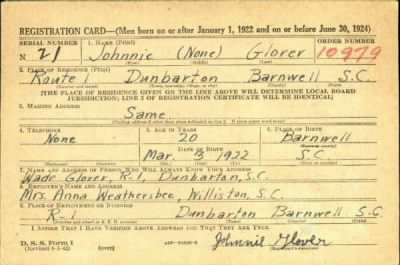 REGISTRATION CARD—(Men born on or after January 1, 1922 and on or before June 30, 1924)
SERIAL NUMBER 1. NAME (Print) ORDER NUMBER
N 21 Johnnie (None) Glover 10979
(First) (Middle) (Last)
2. PLACE OF RESIDENCE (Print)
Route 1 Dunbarton Barnwell S.C.
(Number and street) (Town, township, village, or city) (County) (State)
[THE PLACE OF RESIDENCE GIVEN ON THE LINE ABOVE WILL DETERMINE LOCAL BOARD
JURISDICTION; LINE 2 OF REGISTRATION CERTIFICATE WILL BE IDENTICAL]
3. MAILING ADDRESS
Same
[Mailing address if other than place indicated on line 2. If same insert word same]
4. TELEPHONE 5. AGE IN YEARS 6. PLACE OF BIRTH
None 20 Barnwell
DATE OF BIRTH
Mar. 3 1922 S.C.
7. NAME AND ADDRESS OF PERSON WHO WILL ALWAYS KNOW YOUR ADDRESS
Wade Glover, R-1, Dunbarton, S.C.
8. EMPLOYER'S NAME AND ADDRESS
Mrs. Anna Weathersbee, Williston, S.C.
9. PLACE OF EMPLOYMENT OR BUSINESS
R-1 Dunbarton Barnwell S.C.
(Number and street or R. F. D. number) (Town) (County) (State)
I AFFIRM THAT I HAVE VERIFIED ABOVE ANSWERS AND THAT THEY ARE TRUE.
D. S. S. Form 1
Johnnie Glover